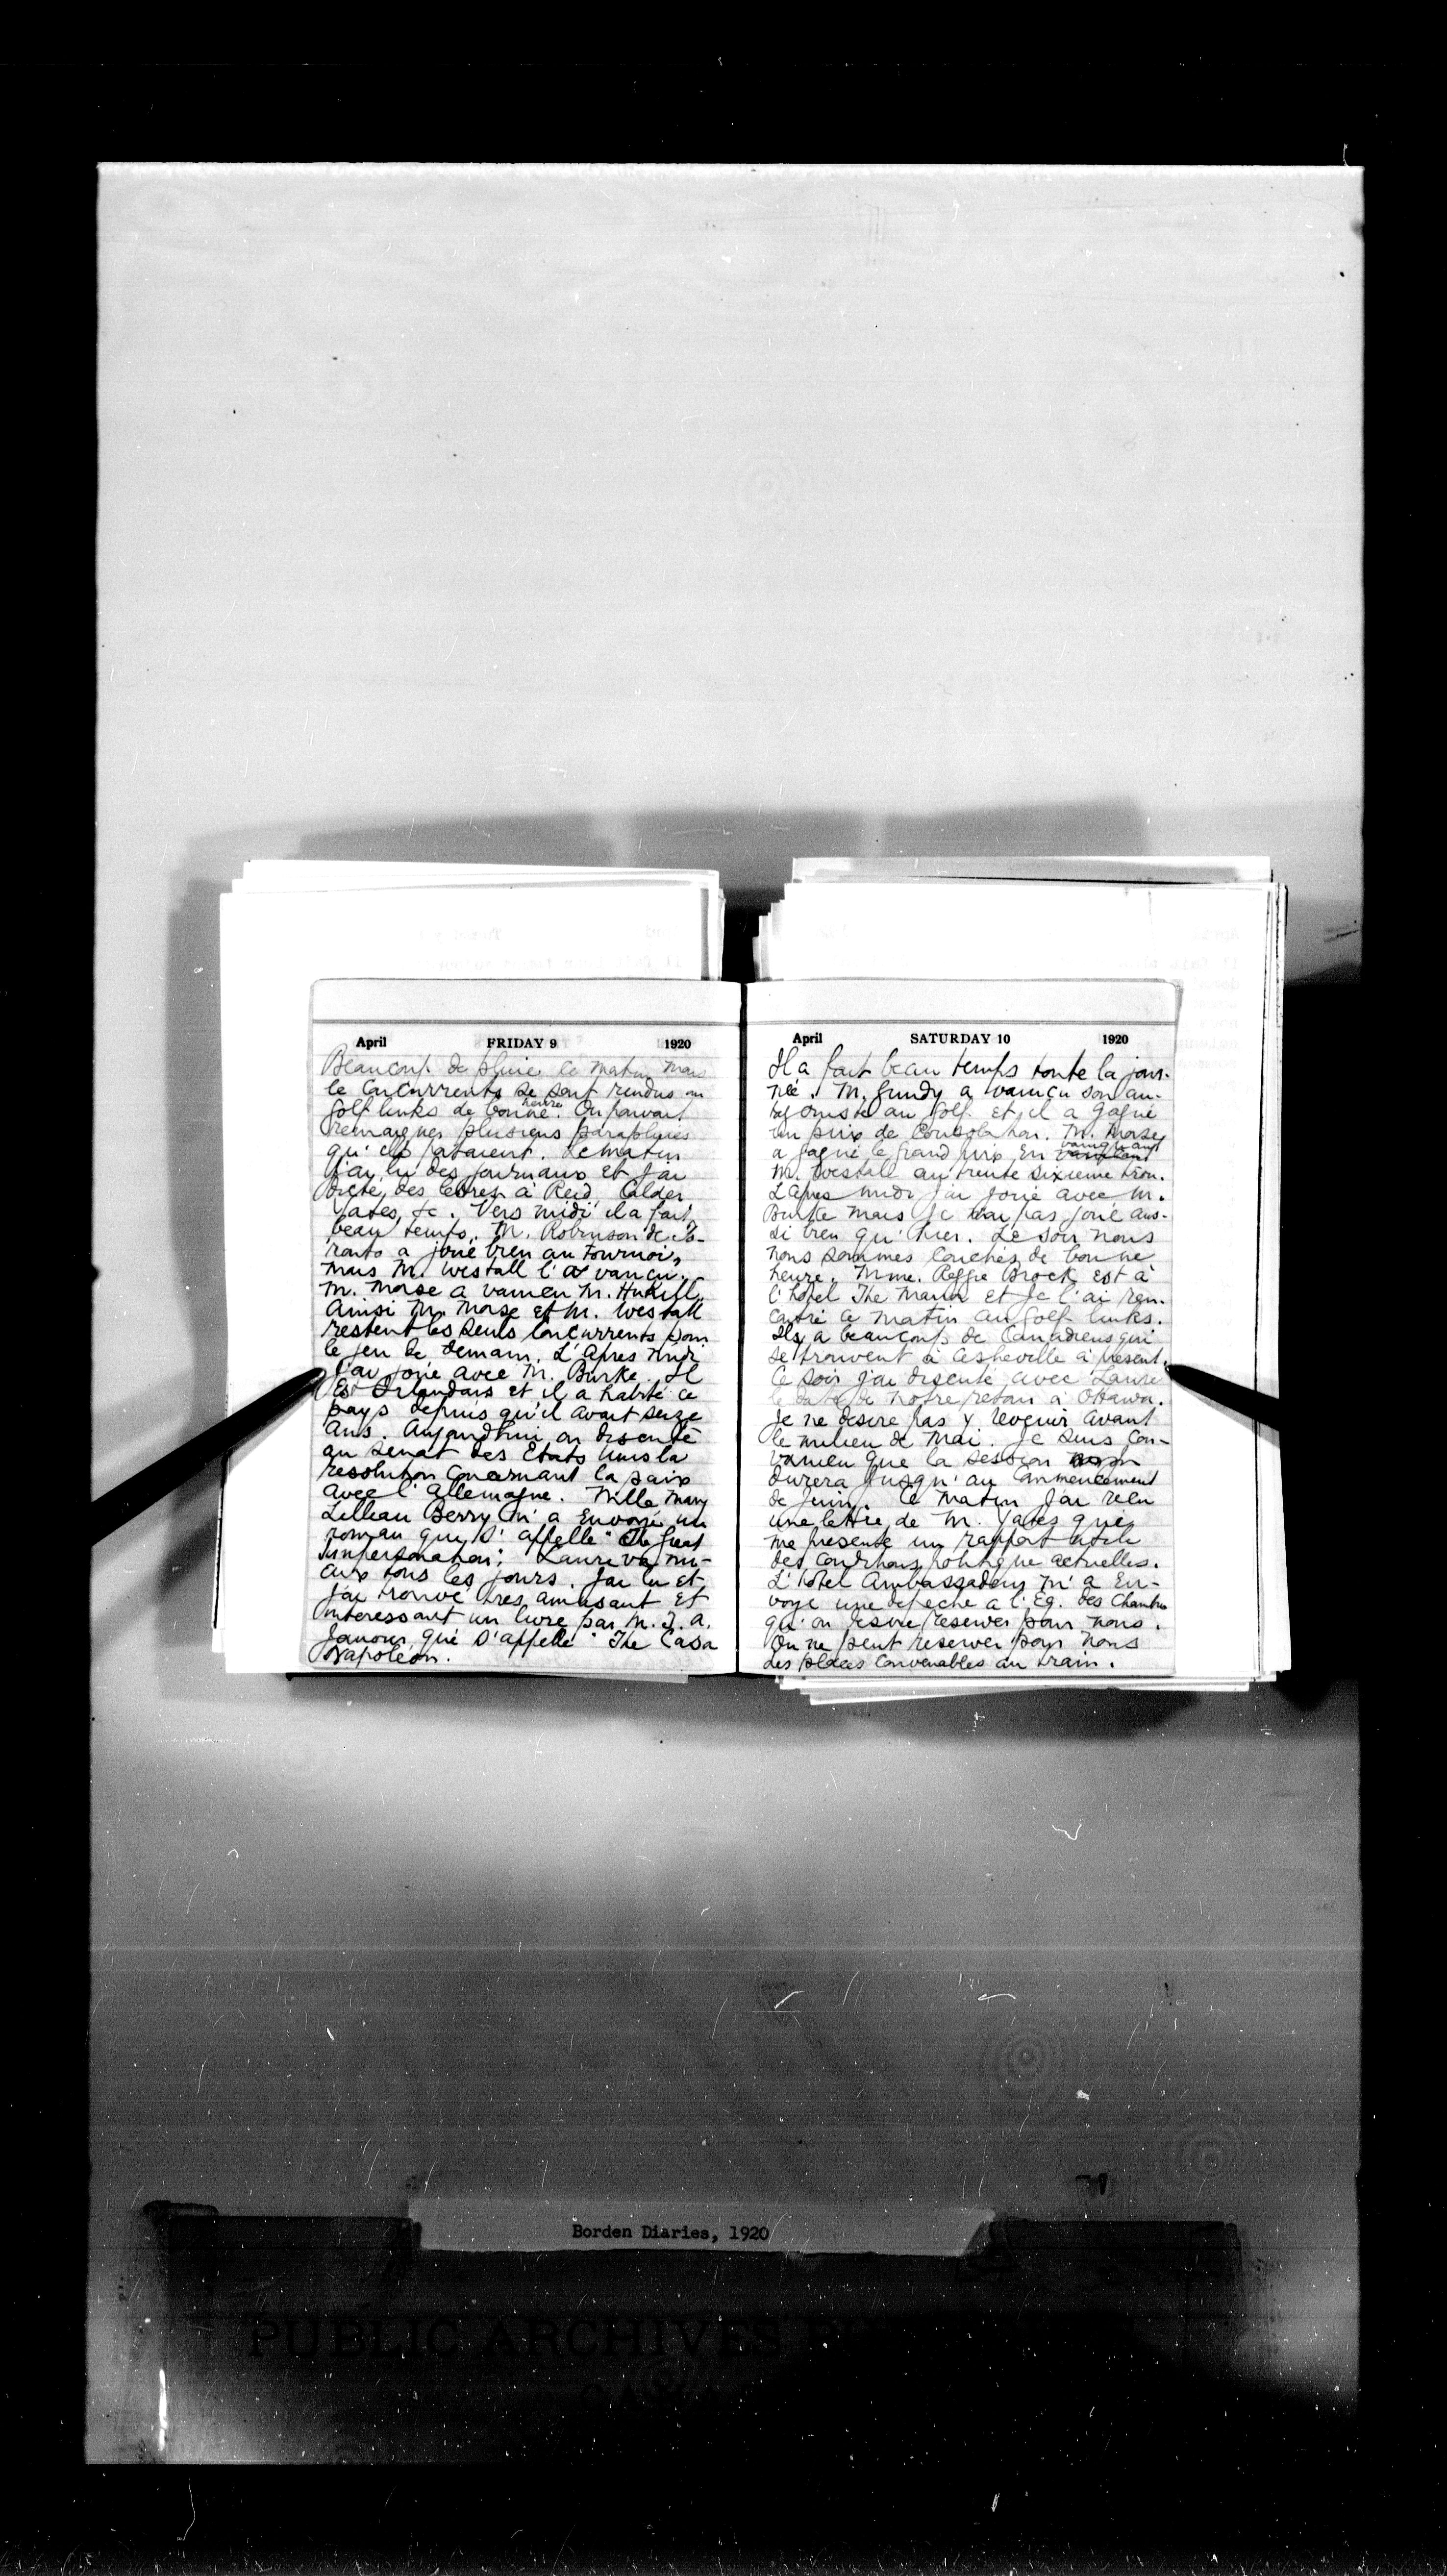 April FRIDAY 9 1920
Beaucoup de pluie le matin mais
le concurrents se sont rendus au
golf links de bonne heure. On pouvait
remarquer plusieurs parapluies
qu'
j'ai lu des journaux et j'ai
dicté des lettres à Reid, Calder
Yates, &c. Vers midi il a fait
beau temps. M. Robinson de To-
ronto a joué bien au tournoi,
mais M. Westall l'a vancu.
M. Morse a vaincu M. 
Ainsi M. Morse et M. Westall
restent les seuls concurrents pour
le jeu de demain. L'apres midi
j'ai joué avec M. Burke. Il
est Irlandais et il a habité ce
pays depuis qu'il avait seize
ans. Aujourdhui on discute
au senat des Etats Unis la
resolution concernant la paix
avec l'Allemagne. Mlle Mary
Lillian Berry m'a envoyé un
roman qui s'appelle "The Great
Impersonation". Laura va mi-
eux tous les jours. J'ai lu et
j'ai trouvé tres amusant et
interessant un livre par M. J. A.
qui s'appelle "The Casa
Napoleon.
April SATURDAY 10 1920
Il a fait beau temps toute la jour-
née. M. Gundy a vaincu son an-
tagoniste au golf et il a gagné
un prix de consolation. M. Morse
a gagné le grand prix en vainquant
M. Westall au trente sixieme trou.
L'apres midi j'ai joué avec M.
Burke mais je n'ai pas joué aus-
si bien qu'hier. Le soir nous
nous sommes couchés de bonne
heure. Mme. Reggie Brock est à
l'hotel The Manor et je l'ai ren-
contré ce matin au golf links.
Il y a beaucoup de Canadiens qui
se trouvent à Asheville à present.
Ce soir j'ai discuté avec Laura
le date de notre retour à Ottawa.
Je ne desire pas y revenir avant
le milieu de Mai. Je suis con-
vaincu que la session
durera jusqu'au commencement
de Juin. Ce matin j'ai recu
une lettre de M. Yates que
me presente un rapport utile
des conditions politique actuelles.
L'hotel Ambassadeur m'a en-
voyé une depeche à l'eg. des chambres
qu'on desire reserver pour nous.
On ne peut reserver pour nous
des places convenables au train.
Borden Diaries, 1920
PUBLIC ARCHIVES